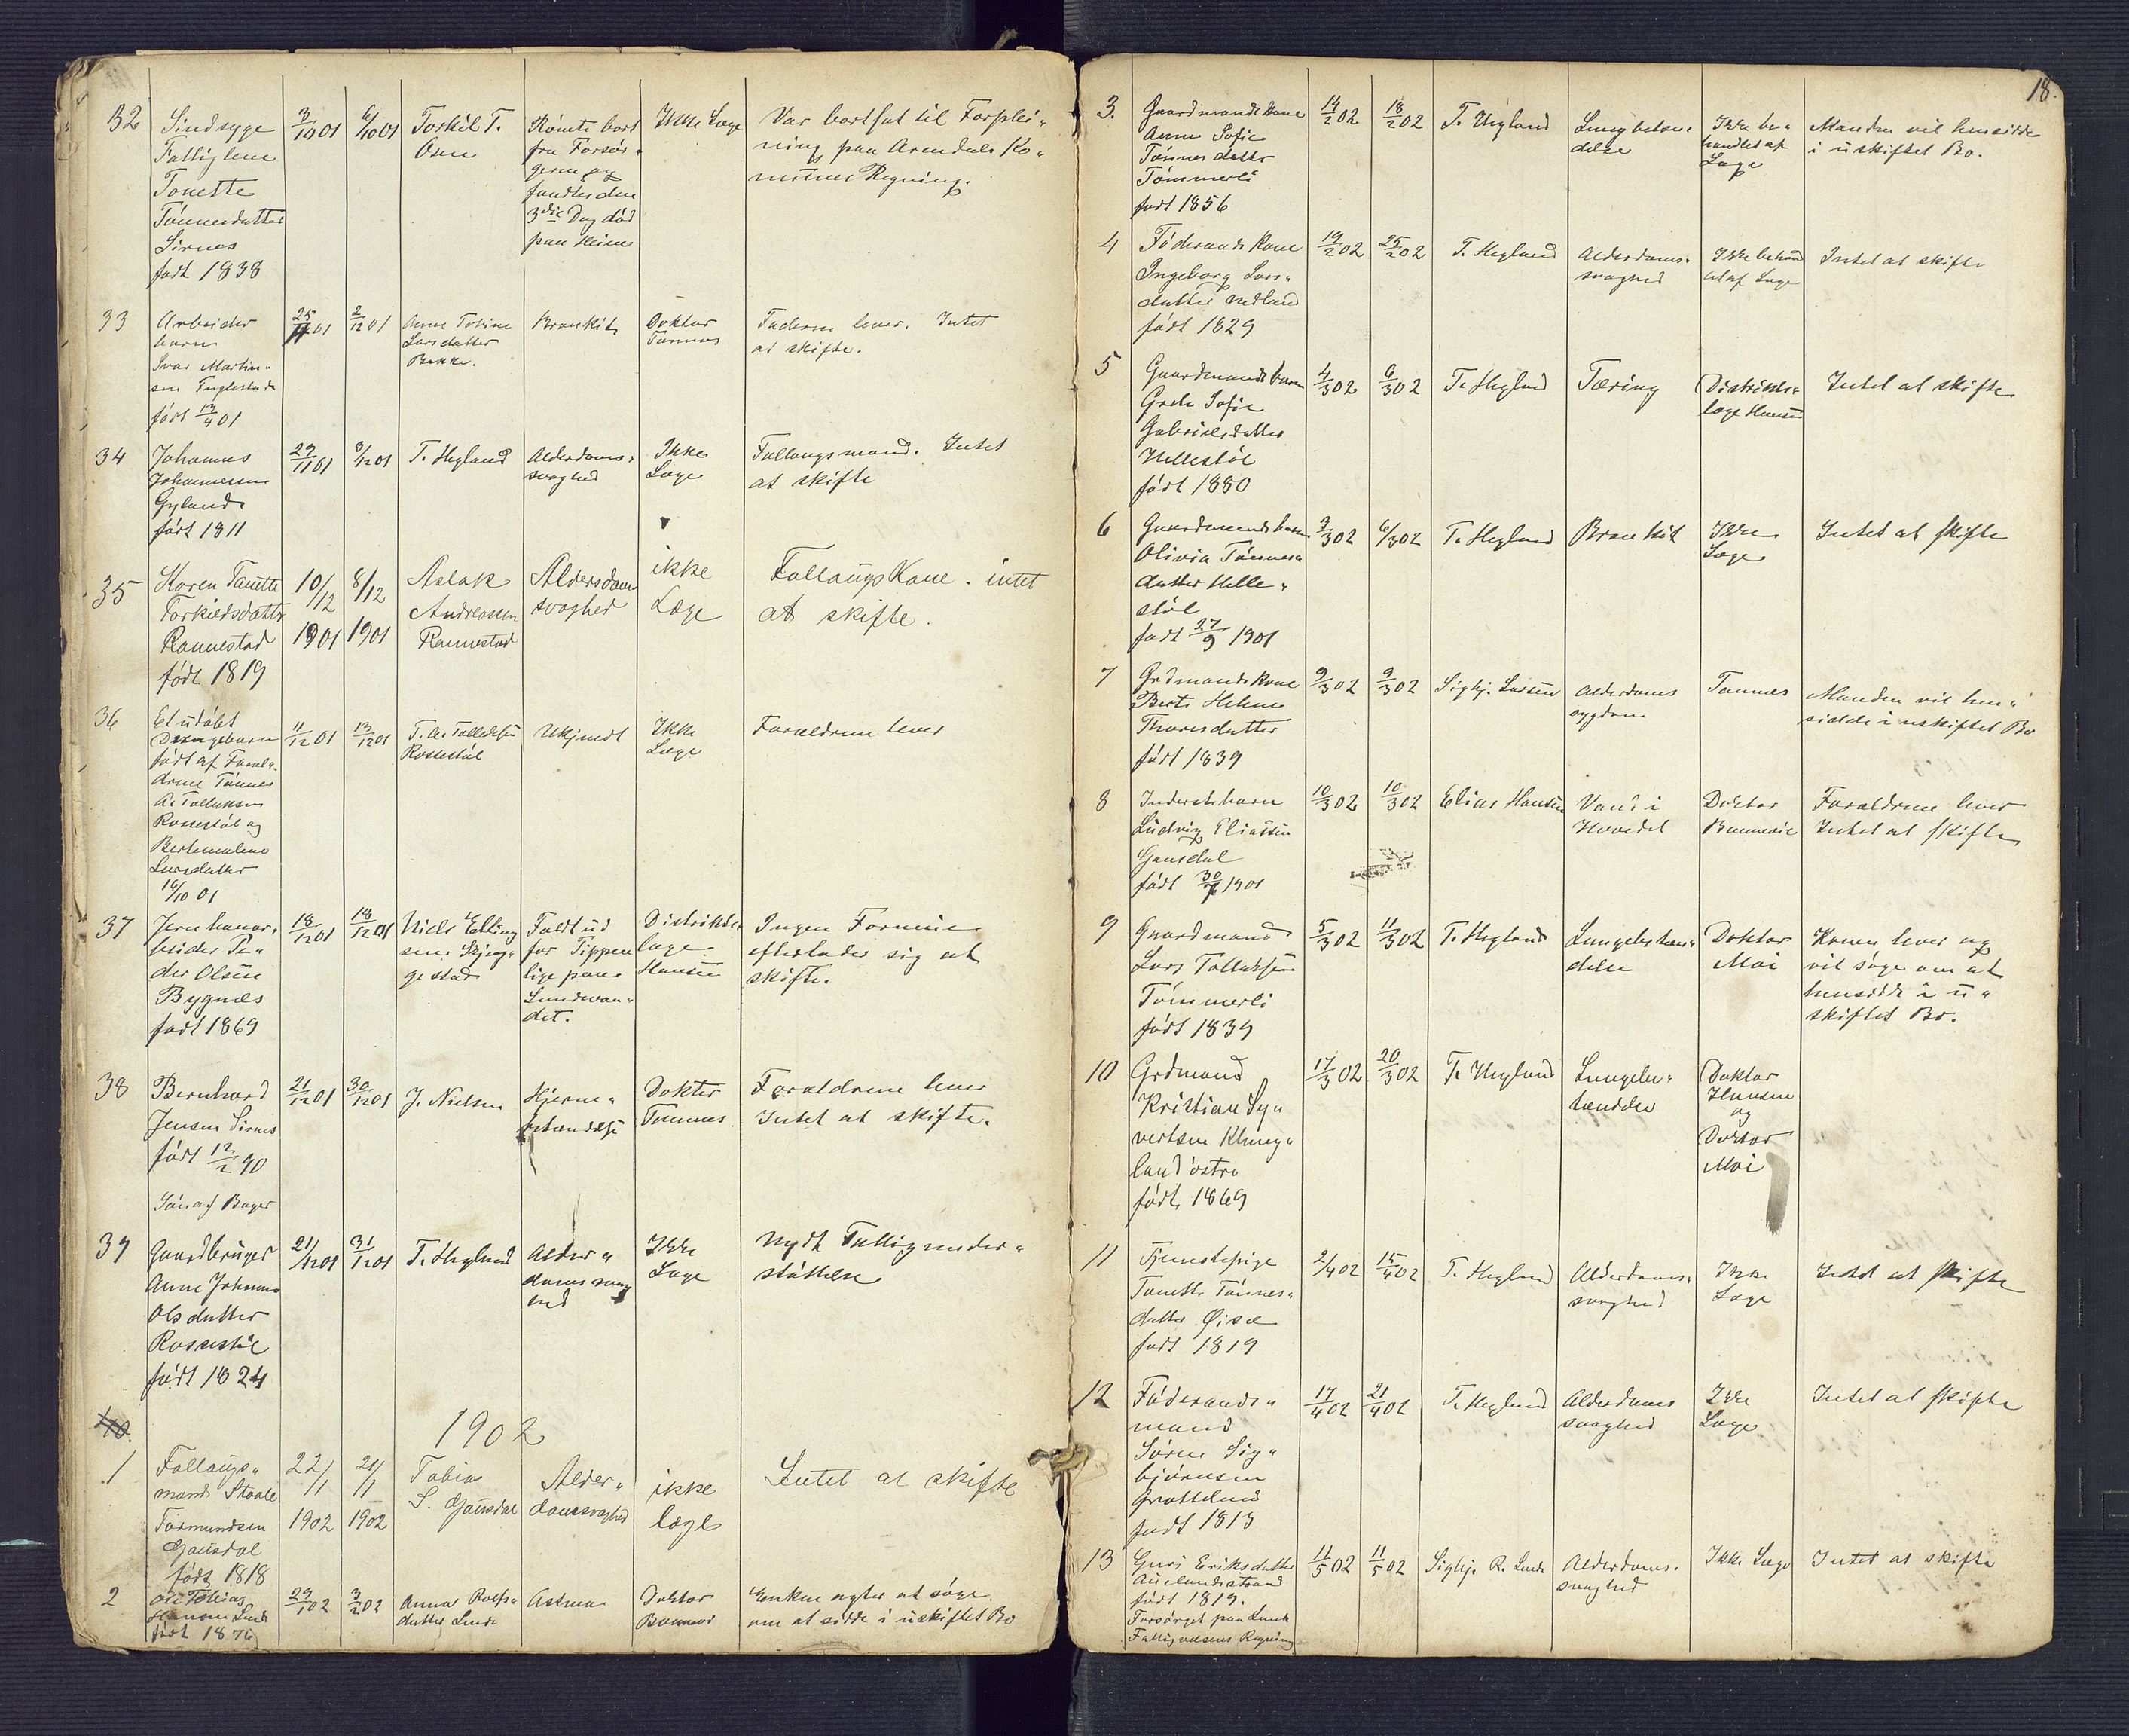 18.
32
Sindsyge
Fattiglem
Tonette
Tönnesdatter
Sirnes
født 1838
3/10 01
6/10 01
Torkil T.
Osen
Römte bort
fra Forsör-
geren og
fandtes den
3die Dag död
paa Heien
Ikke Læge
Var bortsat til Forplei-
ning paa Arendals Ko-
munes Regning.
33
Arbeider
barn
Ivar Martin-
sen Fuglestad
født 13/4 01
25/11 01
2/12 01
Anne Tobine
Larsdatter
Bakke.
Bronkit
Doktor
Tannæs
Faderen lever. Intet
at skifte.
34
Johannes
Johannessen
Gyland
født 1811
29/11 01
3/12 01
T. Hegland
Alderdoms-
svaghed
Ikke
Læge
Follaugsmand. Intet
at skifte
35
Karen Tanette
Torkieldsdatter
Rannestad
født 1819
10/12
1901
8/12
1901
Aslak
Andreassen
Rannestad
Aldersdom
svaghed
ikke
Læge
Follaugs Kane. intet
at skifte.
36
Et udöbt
Drengebarn
født af Foræl-
drene Tönnes
A. Tollaksen
Rossestöl og
Bertemaline
Larsdatter
16/10 01
11/12 01
13/12 01
T. A. Tollaksen
Rossestöl
Ukjendt
Ikke
Læge
Forældrene lever
37
Jernbanear-
beider Pe-
der Olsen
Bygnæs
født 1869
18/12 01
18/12 01
Niels Elling
sen Skjeg-
gestad
Faldt ud
for Tippen
lige paa
Lundevan-
det.
Distrikts-
læge
Hansen
Ingen Formue
efterlader sig at
skifte.
38
Bernhard
Jensen Sirnes
født 12/2 90
Sön af Bager
21/12 01
30/12 01
J. Nielsen
Hjerne-
betændelse
Doktor
Tannæs
Forældrene lever
Intet at skifte.
39
Gaardbruger
Anne Johanna
Olsdatter
Rossestöl
født 1824
21/12 01
31/12 01
T. Hegland
Alder-
doms svag
hed
Ikke
Læge
Nydt Fattigunder-
stöttelse
40.
1902
1
Follaugs-
mand Staale
Tormundsen
Gausdal
født 1818
22/1
1902
21/1
1902
Tobias
S. Gausdal
Alder-
domssvaghed
ikke
læge
Intet at skifte
2
Ole Tobias
Hansen Lunde
født 1876
29/1 02
3/2 02
Anna Rolfs-
datter Lunde
Astma
Doktor
Bonnevi
Enken agter at söge
om at sidde i uskiftet Bo
3.
Gaardmandskone
Anne Sofie
Tönnesdatter
Tömmerli
født 1856
14/2 02
18/2 02
T. Hegland
Lungebetæn-
delse
Ikke be-
handlet af
Læge
Manden vil hensidde
i uskiftet Bo.
4
Föderaads Kone
Ingeborg Lars-
datter Nedland
født 1829
19/2 02
25/2 02
T. Hegland
Alderdoms-
svaghed
Ikke behand
let af Læge
Intet at skifte
5
Gaardmandsbarn
Grete Sofie
Gabrielsdatter
Hellestöl
født 1880
4/3 02
6/3 02
T. Hegland
Tæring
Distrikts-
læge Hansen
Intet at skifte
6
Gaardmandsbarn
Olivia Tönnes-
datter Helle-
stöl
født 27/9 1901
3/3 02
6/3 02
T. Hegland
Bronkit
Ikke
Læge
Intet at skifte
7
Grdmandskone
Berte Helene
Thoresdatter
født 1839
9/3 02
9/3 02
Sigbj. Larsen
Alderdoms
sygdom
Tannæs
Manden vil hen-
sidde i uskiftet Bo
8
Inderstebarn
Ludvig Eliassen
Gausdal
født 30/7 1901
10/3 02
10/3 02
Elias Hansen
Vand i
Hovedet
Doktor
Bonnevie
Forældrene lever
Intet at skifte
9
Gaardmand
Lars Tollaksen
Tömmerli
født 1839
5/3 02
11/3 02
T. Hegland
Lungebetæn-
delse
Doktor
Moi
Konen lever og
vil söge om at
hensidde i u-
skiftet Bo.
10
Grdmand
Kristian Sy-
vertsen Klung-
land östre
født 1869
17/3 02
20/3 02
T. Hegland
Lungebe-
tændelse
Doktor
Hansen
og
Doktor
Moi
11
Tjenestepige
Tonette Tönnes-
datter Øisæ
født 1819
2/4 02
15/4 02
T. Hegland
Alderdoms-
svaghed
Ikke
Læge
Intet at skifte
12
Föderaads-
mand
Sören Sig-
björnsen
født 1813
17/4 02
21/4 02
T. Hegland
Alderdoms
svaghed
Ikke
Læge
Intet at skifte
13
Guri Eriksdatter
Auelandstrand
født 1819.
Forsörget paa Lunds
Fattigvæsens Regning
11/5 02
11/5 02
Sigbj. R. Lunde
Alderdoms-
svaghed
Ikke Læge
Intet at skifte